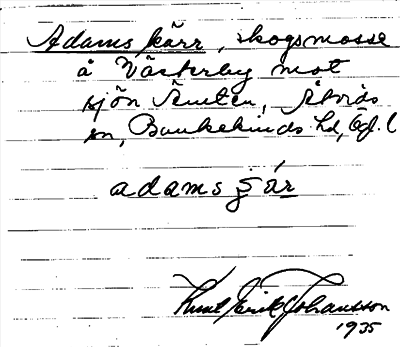 Adams kärr, skogsmosse
å Västerby mot
sjön Ämten, Åtvids
sn, Bankekinds hd, Ögl.
adams ʂär
Knut Erik Johansson
1935